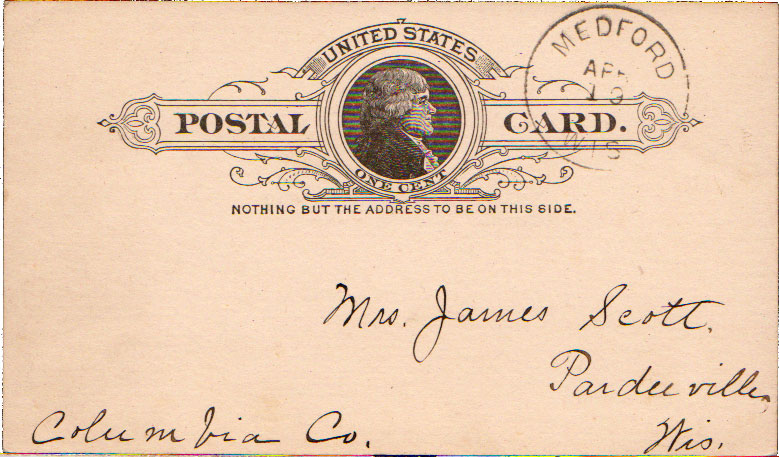 UNITED STATES
POSTAL CARD.
ONE CENT
NOTHING BUT THE ADDRESS TO BE ON THIS SIDE.
MEDFORD
APR
WIS
Mrs. James Scott.
Pardeeville,
Columbia Co. Wis.